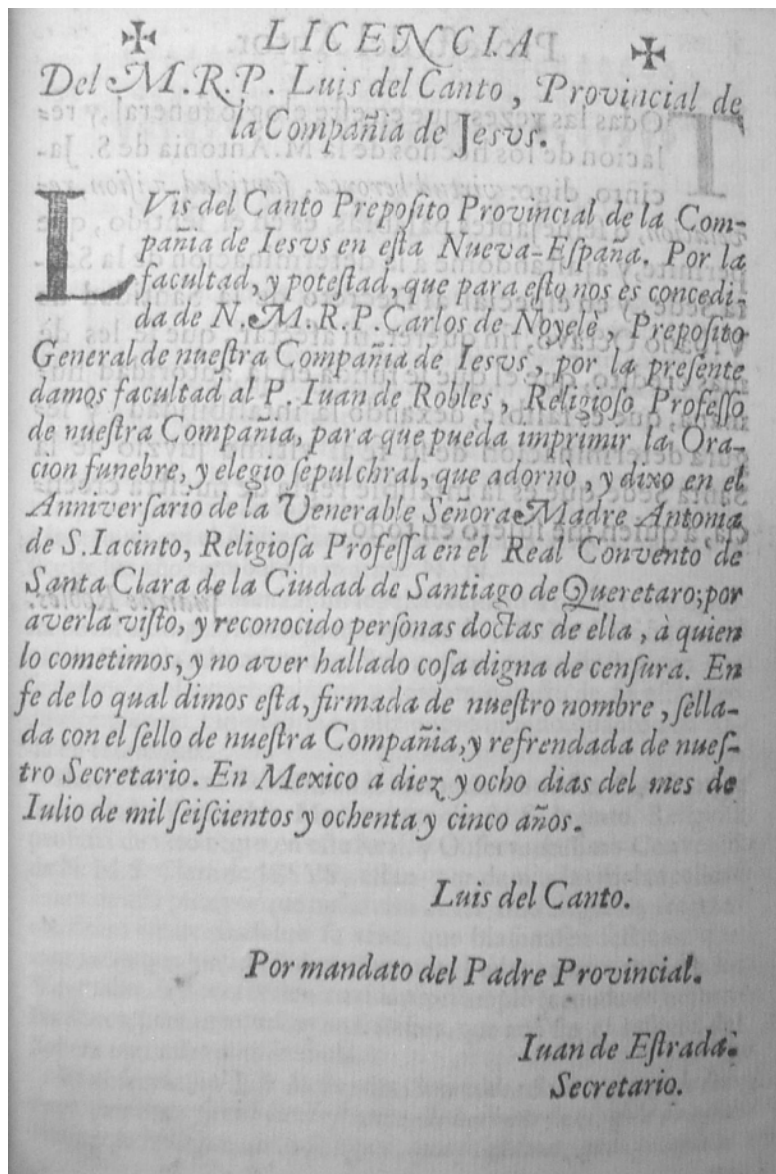 ✠ LICENCIA ✠
Del M.R.P. Luis del Canto, Provincial de
la Compañia de Jesvs.
LVis del Canto Preposito Provincial de la Com-
pañia de Iesvs en eſta Nueva-Eſpaña. Por la
facultad, y poteſtad, que para eſto nos es concedi-
da de N.M.R.P.Carlos de Noyelè, Prepoſito
General de nueſtra Compañia de Iesvs, por la preſente
damos facultad al P. Iuan de Robles, Religioſo Profeſſo
de nueſtra Compañia, para que pueda imprimir la Ora-
cion funebre, y elegio ſepulchral, que adornò, y dixo en el
Anniverſario de la Venerable Señora Madre Antonia
de S.Iacinto, Religioſa Profeſſa en el Real Convento de
Santa Clara de la Ciudad de Santiago de Queretaro; por
averla viſto, y reconocido perſonas doctas de ella, à quien
lo cometimos, y no aver hallado coſa digna de cenſura. En
fe de lo qual dimos eſta, firmada de nueſtro nombre, ſella-
da con el ſello de nueſtra Compañia, y refrendada de nueſ-
tro Secretario. En Mexico a diez y ocho dias del mes de
Iulio de mil ſeiſcientos y ochenta y cinco años.
Luis del Canto.
Por mandato del Padre Provincial.
Iuan de Eſtrada.
Secretario.